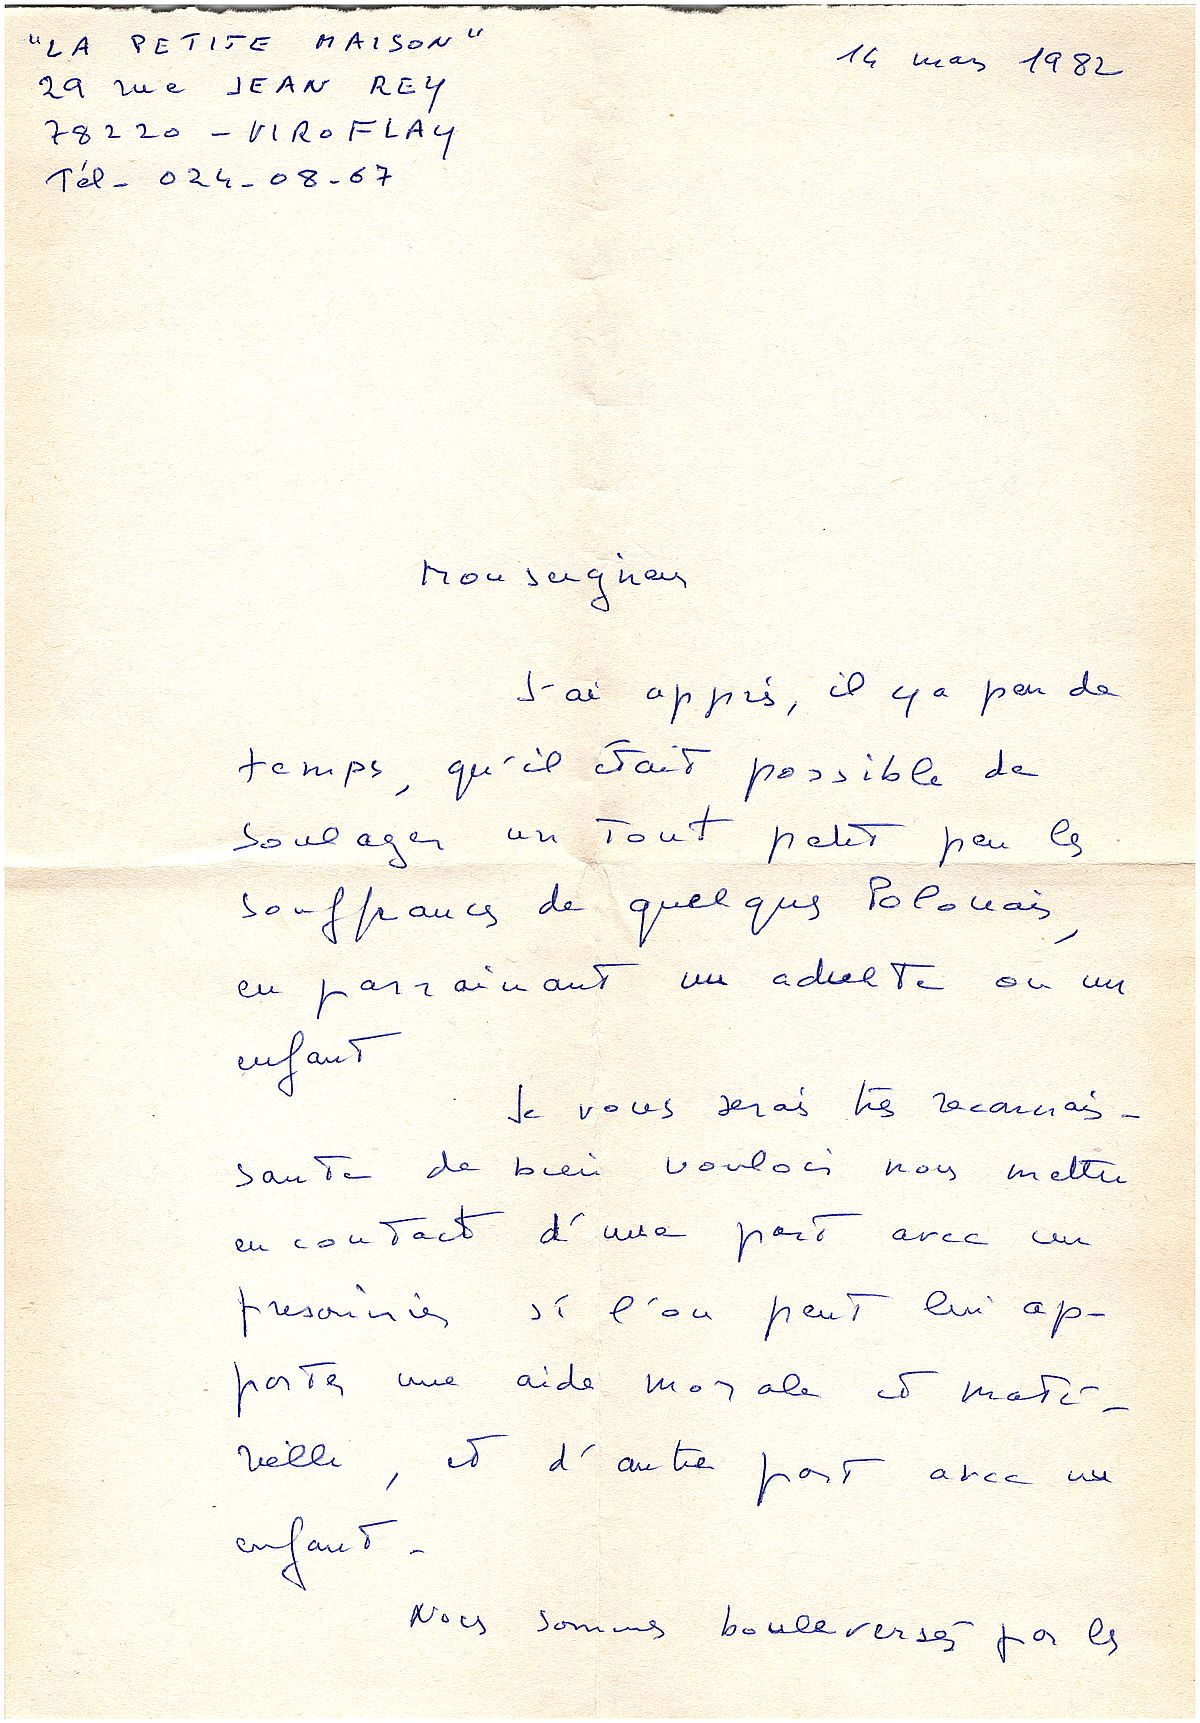 "LA PETITE MAISON"
29 rue JEAN REY
78220 - VIROFLAY
Tél - 024-08-67
14 mars 1982
Monseigneur
J'ai appris, il y a peu de
temps, qu'il était possible de
soulager un tout petit peu les
souffrances de quelques Polonais,
en parrainant un adulte ou un
enfant
Je vous serais très reconnais-
sante de bien vouloir nous mettre
en contact d'une part avec un
prisonnier si l'on peut lui ap-
porter une aide morale et maté-
rielle, et d'autre part avec un
enfant -
Nous sommes bouleversés par les